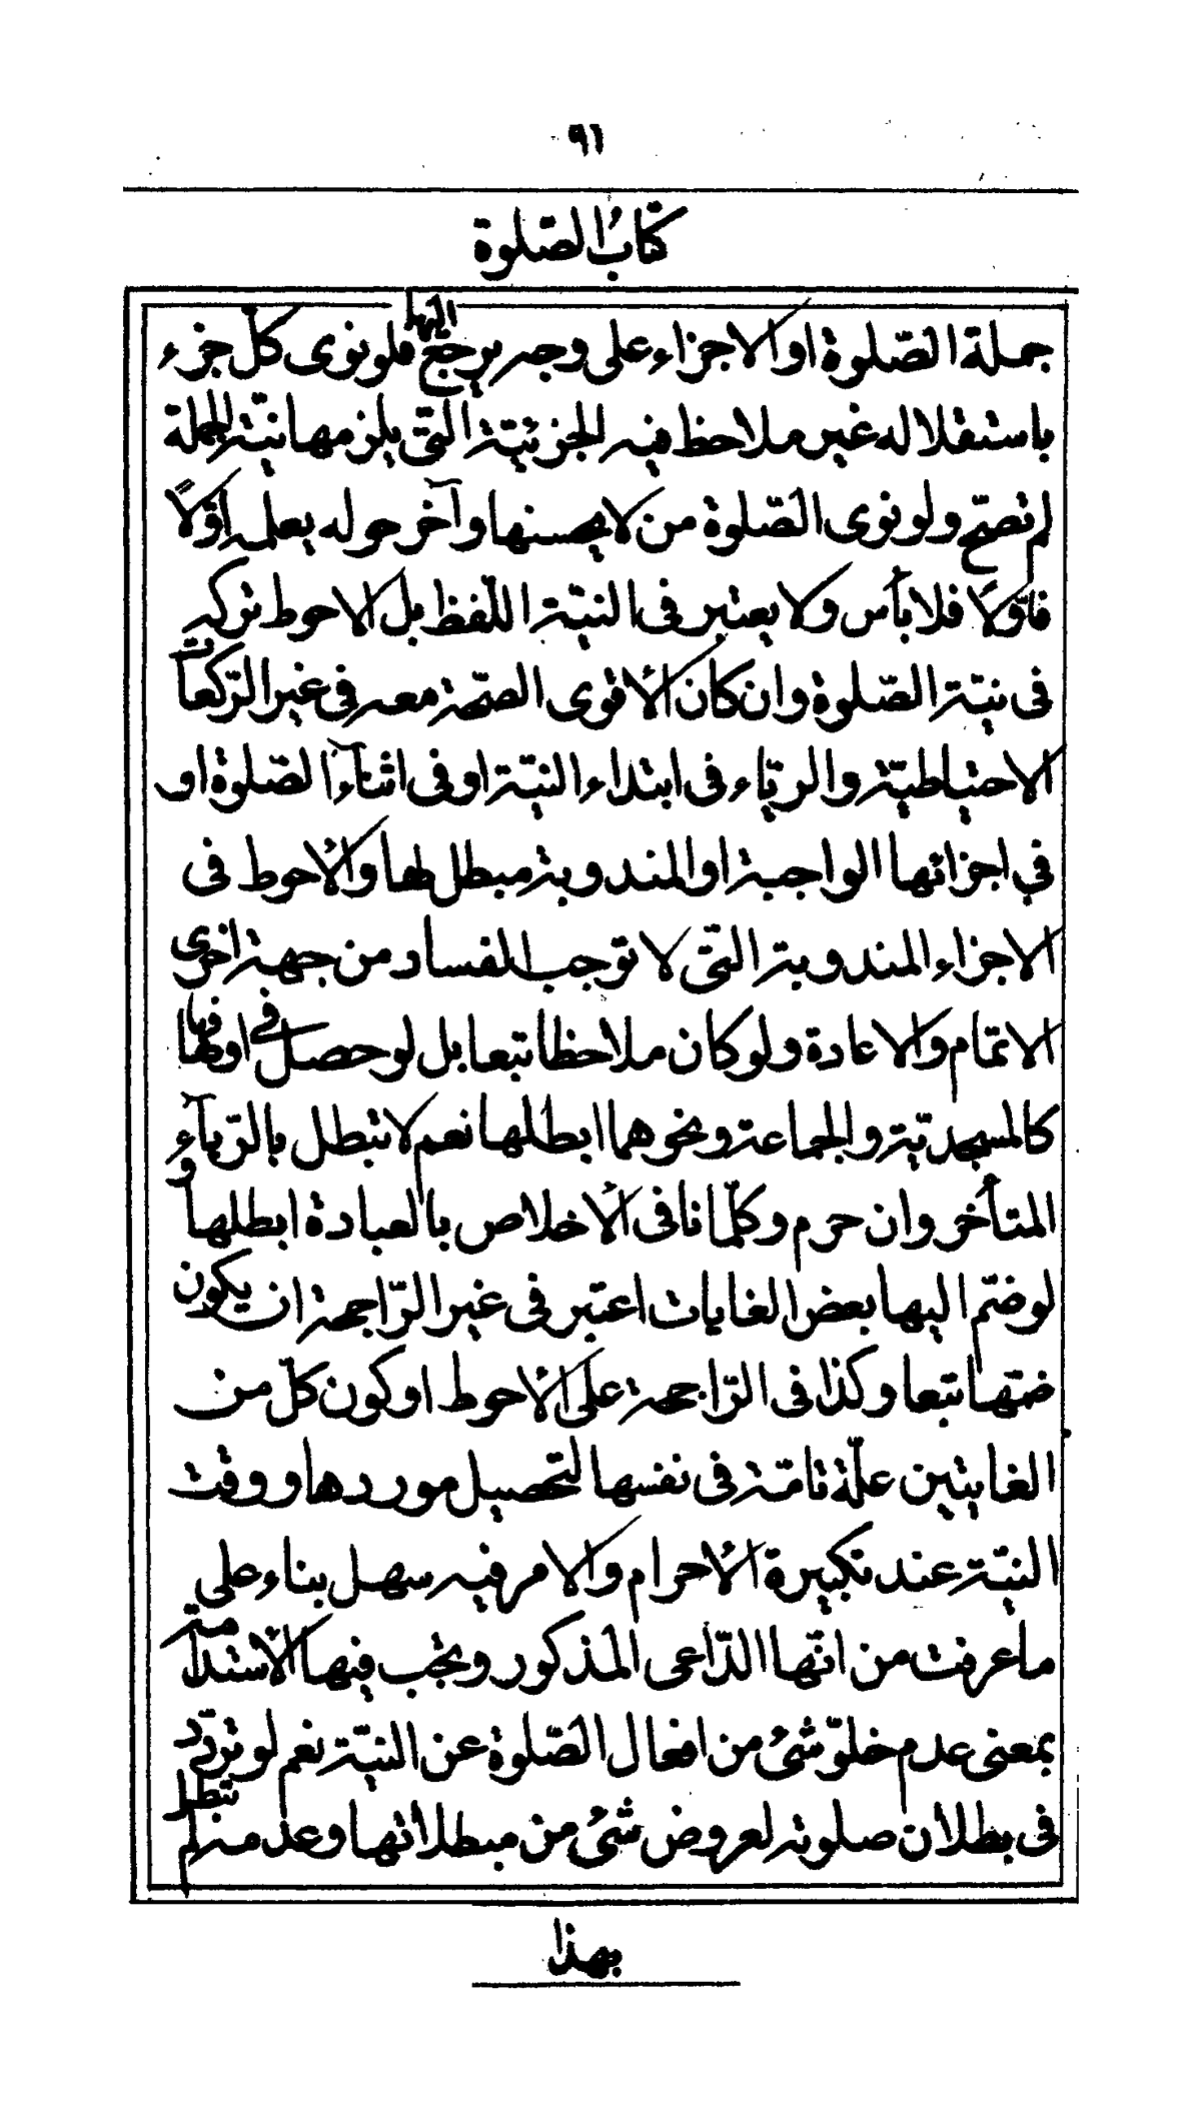 ٩١
كتاب الصّلوة
جملة الصّلوة او الاجزاء على وجه يرجع اليها فلو نوى كلّ جزء
باستقلاله غير ملاحظ فيه الجزئيّة التّى يلزمها نيّة الجملة
لم تصحّ ولو نوى الصّلوة من لا يحسنها وآخر حوله يعلمه اوّلاً
فاوّلاً فلا بأس ولا يعتبر فى النيّة اللّفظ بل الاحوط تركه
فى نيّة الصّلوة وان كان الأقوى الصّحة معه فى غير الرّكعات
الاحتياطيّة والريّاء فى ابتداء النيّة او فى اثنآء الصّلوة او
في اجزائها الواجبة او المندوبة مبطل لها والأحوط فى
الاجزاء المندوبة التّى لا توجب الفساد من جهة اخرى
الاتمام والاعادة ولو كان ملاحظا تبعا بل لو حصل فى اوصافها
كالمسجديّة والجماعة ونحوهما ابطلها نعم لا تبطل بالرّيآء
المتأخر وان حرم وكلّما نافى الأخلاص بالعبادة ابطلها و
لو ضمّ اليها بعض الغايات اعتبر فى غير الرّاجحة ان يكون
ضمّها تبعا وكذا فى الرّاجحة على الأحوط او كون كلّ من
الغايتين علّة تامّة فى نفسها لتحصيل موردها ووقت
النيّة عند تكبيرة الأحرام والامر فيه سهل بناء على
ما عرفت من انّها الدّاعى المذكور ويجب فيها الأستدامة
بمعنى عدم خلوّ شئ من افعال الصّلوة عن النيّة نعم لو تردّد
فى بطلان صلوته لعروض شئ من مبطلاتها وعدمه لم تبطل
بهذا